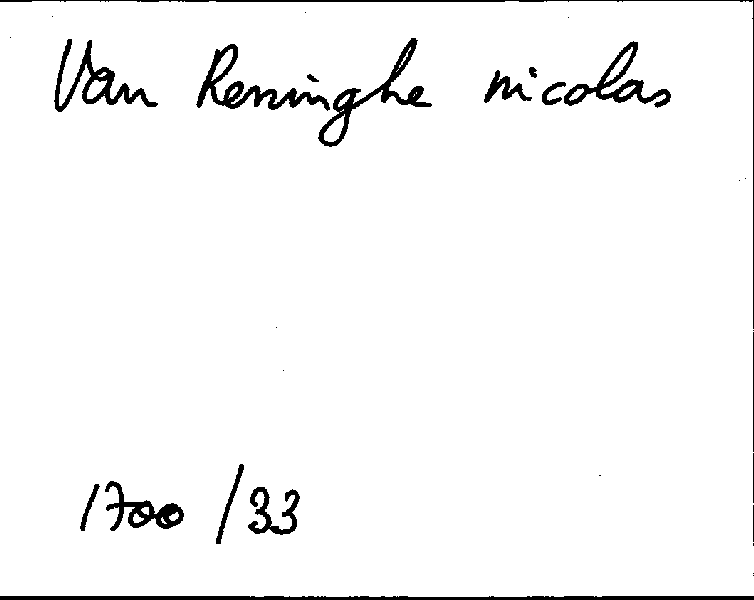 Van Renninghe nicolas
1700 / 33